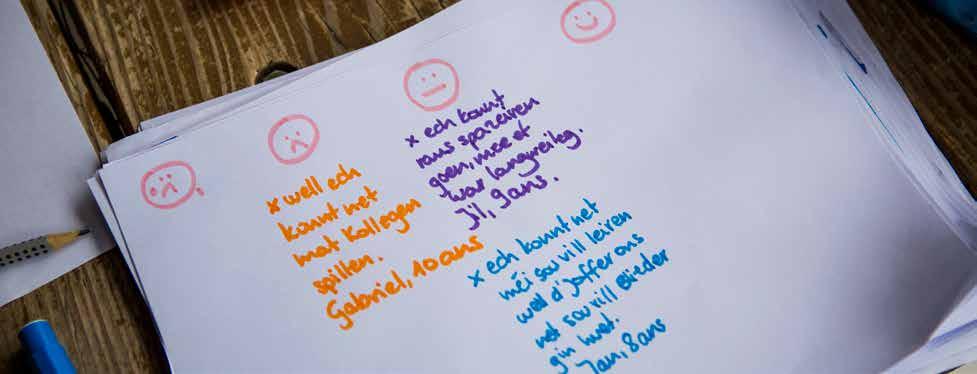 x well ech
konnt net
mat Kollegen
spillen.
Gabriel, 10 ans
x ech konnt
raus spazéiren
goen, mee et
war langweileg.
Jil, 9 ans.
x ech konnt net
méi sou vill léiren
well d'Joffer ons
net sou vill
gin huet.
Jan, 8 ans